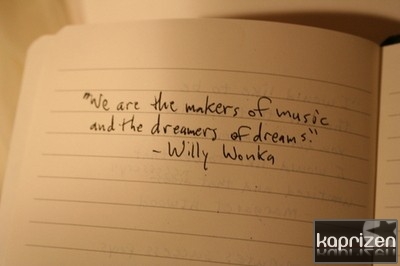 "We are the makers of music
and the dreamers of dreams."
- Willy Wonka
kaprizen